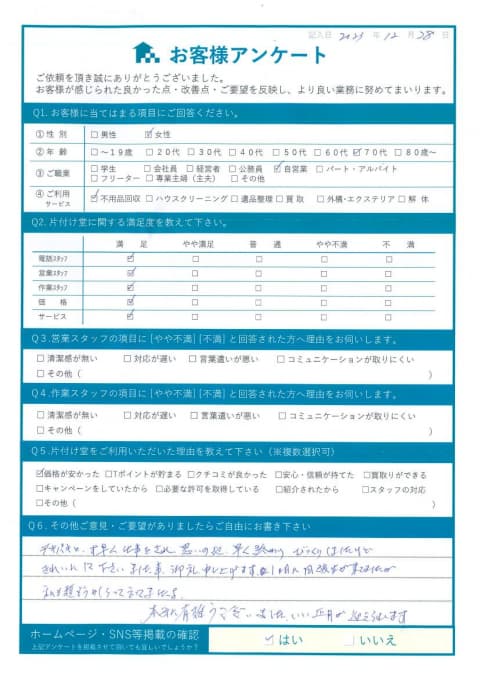 記入日 2023 年 12 月 28 日
お客様アンケート
ご依頼を頂き誠にありがとうございました。
お客様が感じられた良かった点・改善点・ご要望を反映し、より良い業務に努めてまいります。
Q1.お客様に当てはまる項目にご回答ください。
①性別 □男性 ☑女性
②年齢 □～19歳 □20代 □30代 □40代 □50代 □60代 ☑70代 □80歳～
③ご職業 □学生 □会社員 □経営者 □公務員 ☑自営業 □パート・アルバイト
□フリーター □専業主婦（主夫） □その他
④ご利用サービス ☑不用品回収 □ハウスクリーニング □遺品整理 □買取 □外構・エクステリア □解体
Q2.片付け堂に関する満足度を教えて下さい。
満足 やや満足 普通 やや不満 不満
電話スタッフ ☑ □ □ □ □
営業スタッフ ☑ □ □ □ □
作業スタッフ ☑ □ □ □ □
価格 ☑ □ □ □ □
サービス ☑ □ □ □ □
Q3.営業スタッフの項目に[やや不満][不満]と回答された方へ理由をお伺いします。
□清潔感が無い □対応が遅い □言葉遣いが悪い □コミュニケーションが取りにくい
□その他（ ）
Q4.作業スタッフの項目に[やや不満][不満]と回答された方へ理由をお伺いします。
□清潔感が無い □対応が遅い □言葉遣いが悪い □コミュニケーションが取りにくい
□その他（ ）
Q5.片付け堂をご利用いただいた理由を教えて下さい（※複数選択可）
☑価格が安かった □Tポイントが貯まる □クチコミが良かった □安心・信頼が持てた □買取りができる
□キャンペーンをしていたから □必要な許可を取得している □紹介されたから □スタッフの対応
□その他（ ）
Q6.その他ご意見・ご要望がありましたらご自由にお書き下さい
ホームページ・SNS等掲載の確認 ☑はい □いいえ
上記アンケートを掲載させて頂いても宜しいでしょうか？